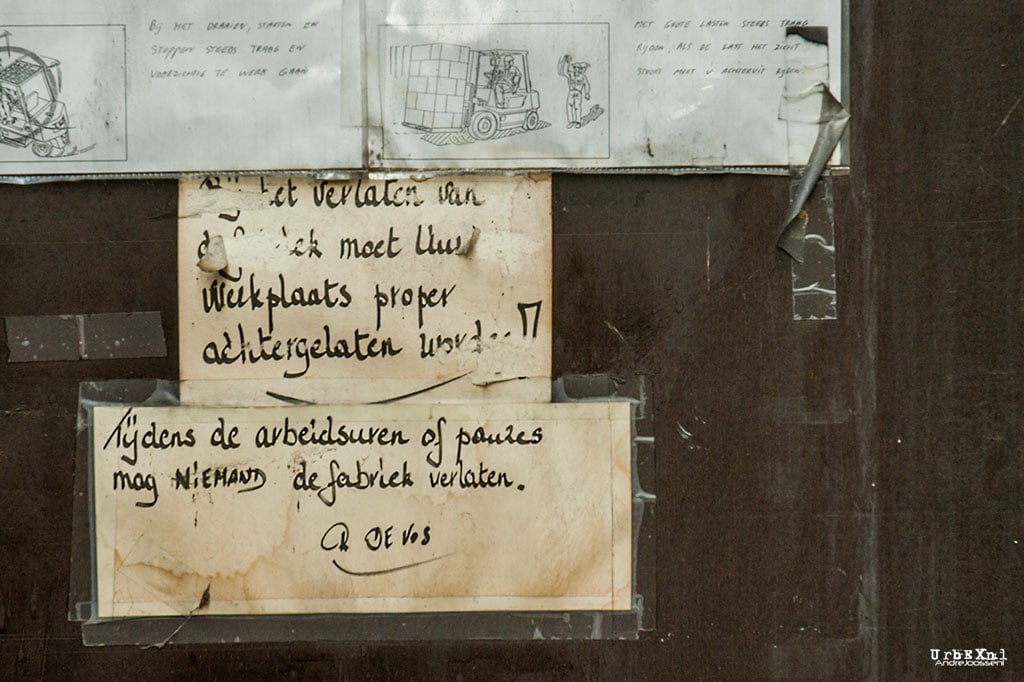 Bij HET DRAAIEN, STARTEN EN
STOPPEN STEEDS TRAAG EN
VOORZICHTIG TE WERK GAAN
MET GROTE LASTEN STEEDS TRAAG
RIJDEN, ALS DE LAST HET ZICHT
STOORT MOET U ACHTERUIT RIJDEN.
het verlaten van
moet
Werkplaats proper
achtergelaten
Tijdens de arbeidsuren of pauzes
mag NiEMAND de fabriek verlaten.
DE VOS
UrbEXnl
AndreJoosse.nl